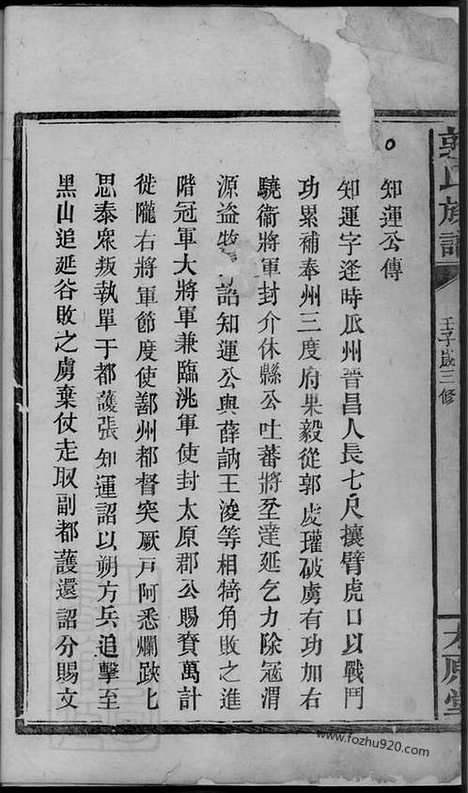 郭氏族譜
壬子歲三修
太原堂
知運公傳
知運字逢時瓜州晉昌人長七尺攘臂虎口以戰鬥
功累補奉州三度府果毅從郭虔瓘破虜有功加右
驍衛將軍封介休縣公吐蕃將坌達延乞力除寇渭
源盜牧 詔知運公與薛訥王浚等相犄角敗之進
階冠軍大將軍兼臨洮軍使封太原郡公賜賚萬計
徙隴右將軍節度使鄯州都督突厥戶阿悉爛跌乜
思泰衆叛執單于都護張知運詔以朔方兵追擊至
黑山追延谷敗之虜棄仗走取副都護還詔分賜文
www.fozhu920.com